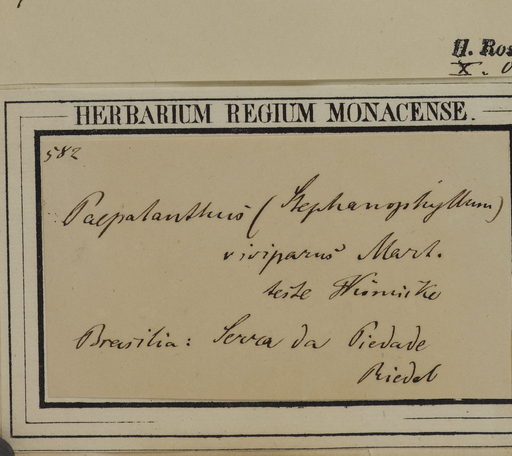 H. Ros
X.
HERBARIUM REGIUM MONACENSE.
582
Paepalanthus (Stephanophyllum)
viviparus Mart.
teste Körnicke
Brasilia: Serra da Piedade
Riedel